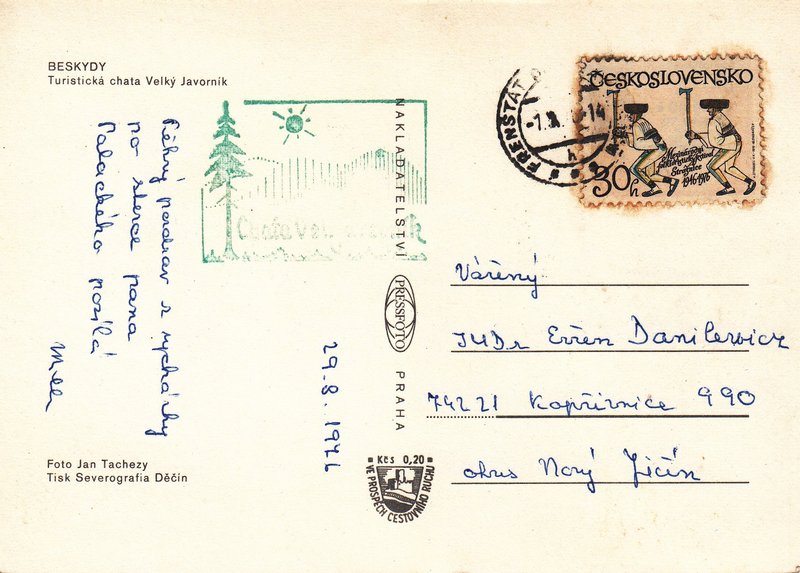 BESKYDY
Turistická chata Velký Javorník
Pěkný pozdrav z vycházky
po stezce pana
Palackého posílá
29.8.1976
Foto Jan Tachezy
Tisk Severografia Děčín
NAKLADATELSTVÍ
PRESSFOTO
PRAHA
Kčs 0,20
VE PROSPĚCH CESTOVNÍHO RUCHU
FRENŠTÁT
ČESKOSLOVENSKO
Strážnice
1946-1976
30h
Vážený
JUDr Evžen Danilewicz
74221 Kopřivnice 990
okres Nový Jičín